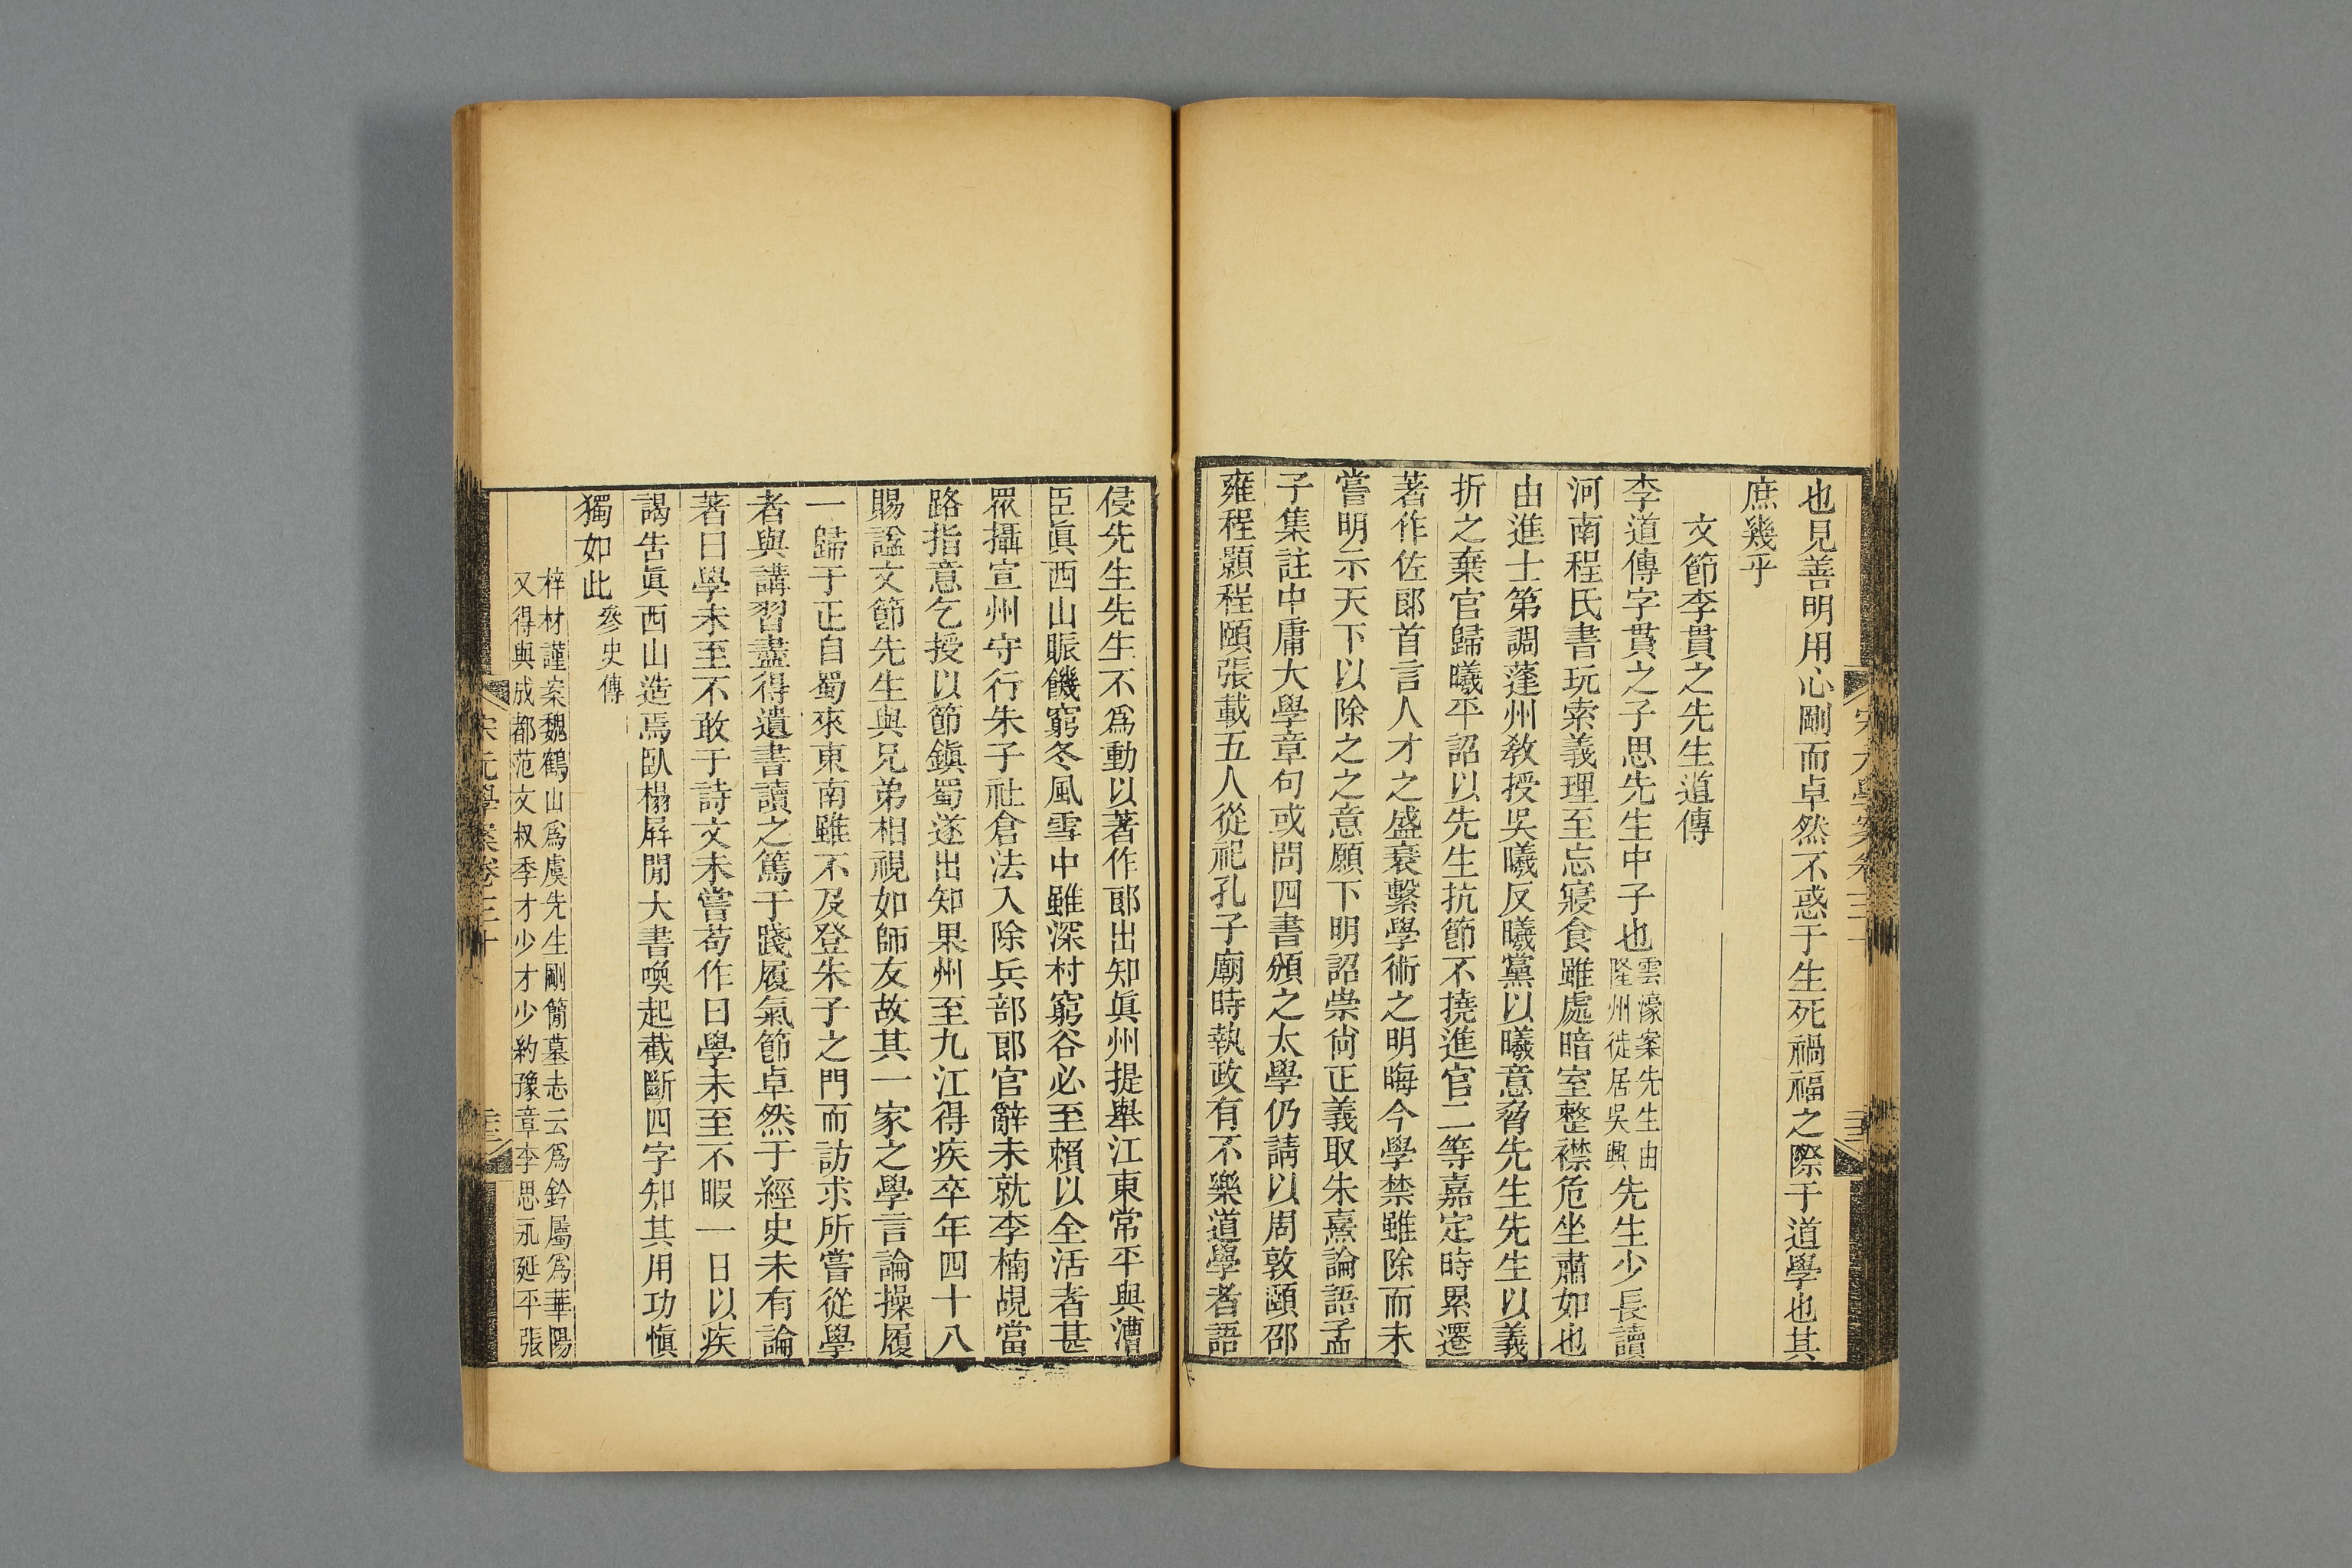 也見善明用心剛而卓然不惑于生死禍福之際于道學也其
庶幾乎
文節李貫之先生道傳
李道傳字貫之子思先生中子也雲濠案先生由隆州徙居吳興先生少長讀
河南程氏書玩索義理至忘寢食雖處暗室整襟危坐肅如也
由進士第調蓬州敎授吳曦反曦黨以曦意脅先生先生以義
折之棄官歸曦平詔以先生抗節不撓進官二等嘉定時累遷
著作佐郎首言人才之盛衰繫學術之明晦今學禁雖除而未
嘗明示天下以除之之意願下明詔崇尙正義取朱熹論語孟
子集註中庸大學章句或問四書頒之太學仍請以周敦頤邵
雍程顥程頤張載五人從祀孔子廟時執政有不樂道學者語
侵先生先生不爲動以著作郎出知眞州提舉江東常平與漕
臣眞西山賑饑窮冬風雪中雖深村窮谷必至賴以全活者甚
眾攝宣州守行朱子社倉法入除兵部郎官辭未就李楠覘當
路指意乞授以節鎭蜀遂出知果州至九江得疾卒年四十八
賜諡文節先生與兄弟相視如師友故其一家之學言論操履
一歸于正自蜀來東南雖不及登朱子之門而訪求所嘗從學
者與講習盡得遺書讀之篤于踐履氣節卓然于經史未有論
著曰學未至不敢于詩文未嘗苟作曰學未至不暇一日以疾
謁告眞西山造焉臥榻屛閒大書喚起截斷四字知其用功愼
獨如此參史傳
梓材謹案魏鶴山爲虞先生剛簡墓志云爲鈐屬爲華陽
又得與成都范文叔季才少才少約豫章李思永延平張
宋元學案卷三十